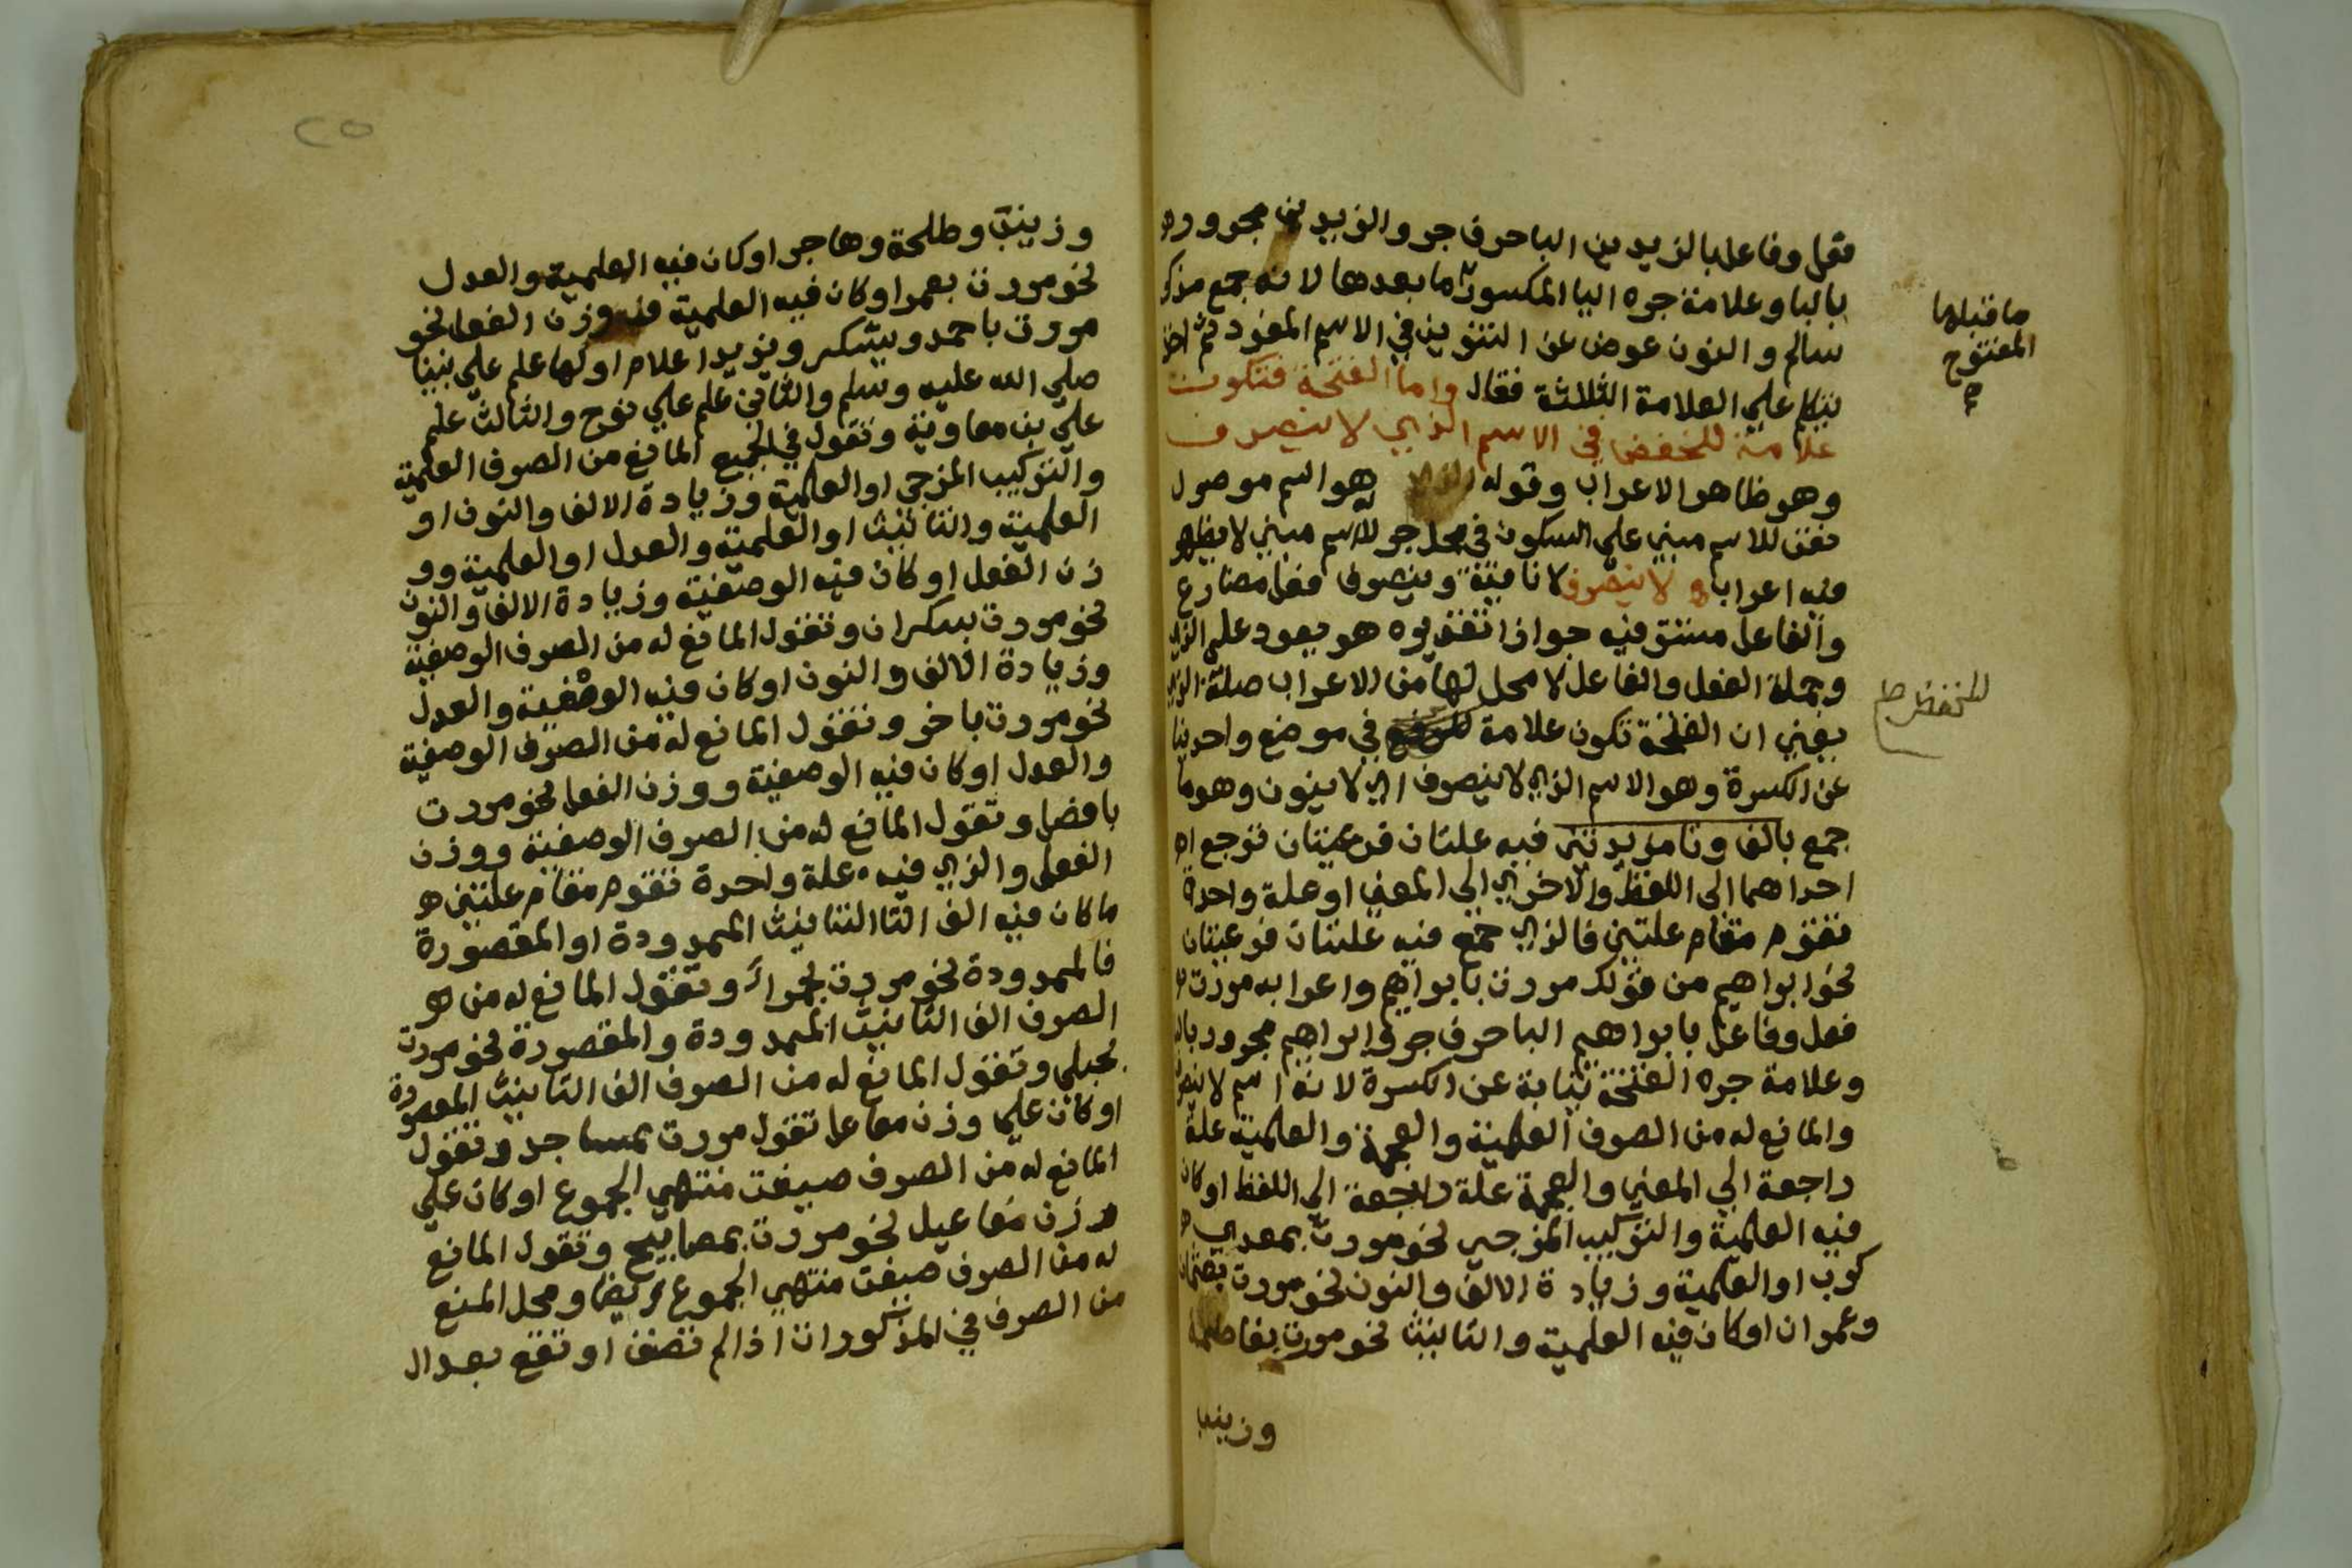 فعل وفاعل بالزيدين البا حرف جر والزيدين مجرور
باليا وعلامة جره اليا المكسور ما بعدها لانه جمع مذكر
سالم والنون عوض عن التنوين في الاسم المفرد ثم اخذ
يتكلم علي العلامة الثلاثة فقال واما الفتحة فتكون
علامة للخفض في الاسم الذي لا ينصرف
وهو ظاهر الاعراب وقوله الذي هو اسم موصول
نعت للاسم مبني على السكون في محل جر لانه اسم مبني لا يظهر
فيه اعراب ولا ينصرف لا نافية وينصرف فعل مضارع
والفاعل مستتر فيه جوازا تقديره هو يعود على الذي
وجملة الفعل والفاعل لا محل لها من الاعراب صلة الذي
يعني ان الفتحة تكون علامة في موضع واحد نيابة
عن الكسرة وهو الاسم الذي لا ينصرف اي لا ينون وهو ما
جمع بالف وتا مزيدتين فيه علتان فرعيتان ترجع
احداهما الى اللفظ والاخري الي المعني او علة واحدة
تقوم مقام علتين فالذي جمع فيه علتان فرعيتان
نحو ابراهيم من قولك مررت بابراهيم واعرابه مررت
فعل وفاعل بابراهيم البا حرف جر وابراهيم مجرور بالبا
وعلامة جره الفتحة نيابة عن الكسرة لانه اسم لا ينصرف
والمانع له من الصرف العلمية والعجمة والعلمية علة
راجعة الي المعني والعجمة علة راجعة الي اللفظ او كان
فيه العلمية والتركيب المزجي نحو مررت بمعدي
كرب او العلمية وزيادة الالف والنون نحو مررت بعثمان
وعمران او كان فيه العلمية والتانيث نحو مررت بفاطمة
وزينب
ما قبلها
المفتوح
للخفض صح
وزينب وطلحة وهاجر او كان فيه العلمية والعدل
نحو مررت بعمر او كان فيه العلمية ووزن الفعل نحو
مررت باحمد ويشكر ويزيد اعلام اولها علم علي نبينا
صلي الله عليه وسلم والثاني علم علي نوح والثالث علم
علي بن معاوية وتقول في الجميع المانع من الصرف العلمية
والتركيب المزجي او العلمية وزيادة الالف والنون او
العلمية والتانيث او العلمية والعدل او العلمية وو
زن الفعل او كان فيه الوصفية وزيادة الالف والنون
نحو مررت بسكران وتقول المانع له من الصرف الوصفية
وزيادة الالف والنون او كان فيه الوصفية والعدل
نحو مررت باخر وتقول المانع له من الصرف الوصفية
والعدل او كان فيه الوصفية ووزن الفعل نحو مررت
بافضل وتقول المانع له من الصرف الوصفية ووزن
الفعل والذي فيه علة واحدة تقوم مقام علتين
ما كان فيه الف التا التانيث الممدودة او المقصورة
فالممدودة نحو مررت بحمراء وتقول المانع له من
الصرف الف التانيث الممدودة والمقصورة نحو مررت
بحبلي وتقول المانع له من الصرف الف التانيث المقصورة
او كان علي وزن مفاعل تقول مررت بمساجد وتقول
المانع له من الصرف صيغت منتهي الجموع او كان علي
وزن مفاعيل نحو مررت بمصابيح وتقول المانع
له من الصرف صيغت منتهي الجموع ايضا ومحل المنع
من الصرف في المذكورات اذا لم تضف او تقع بعد ال